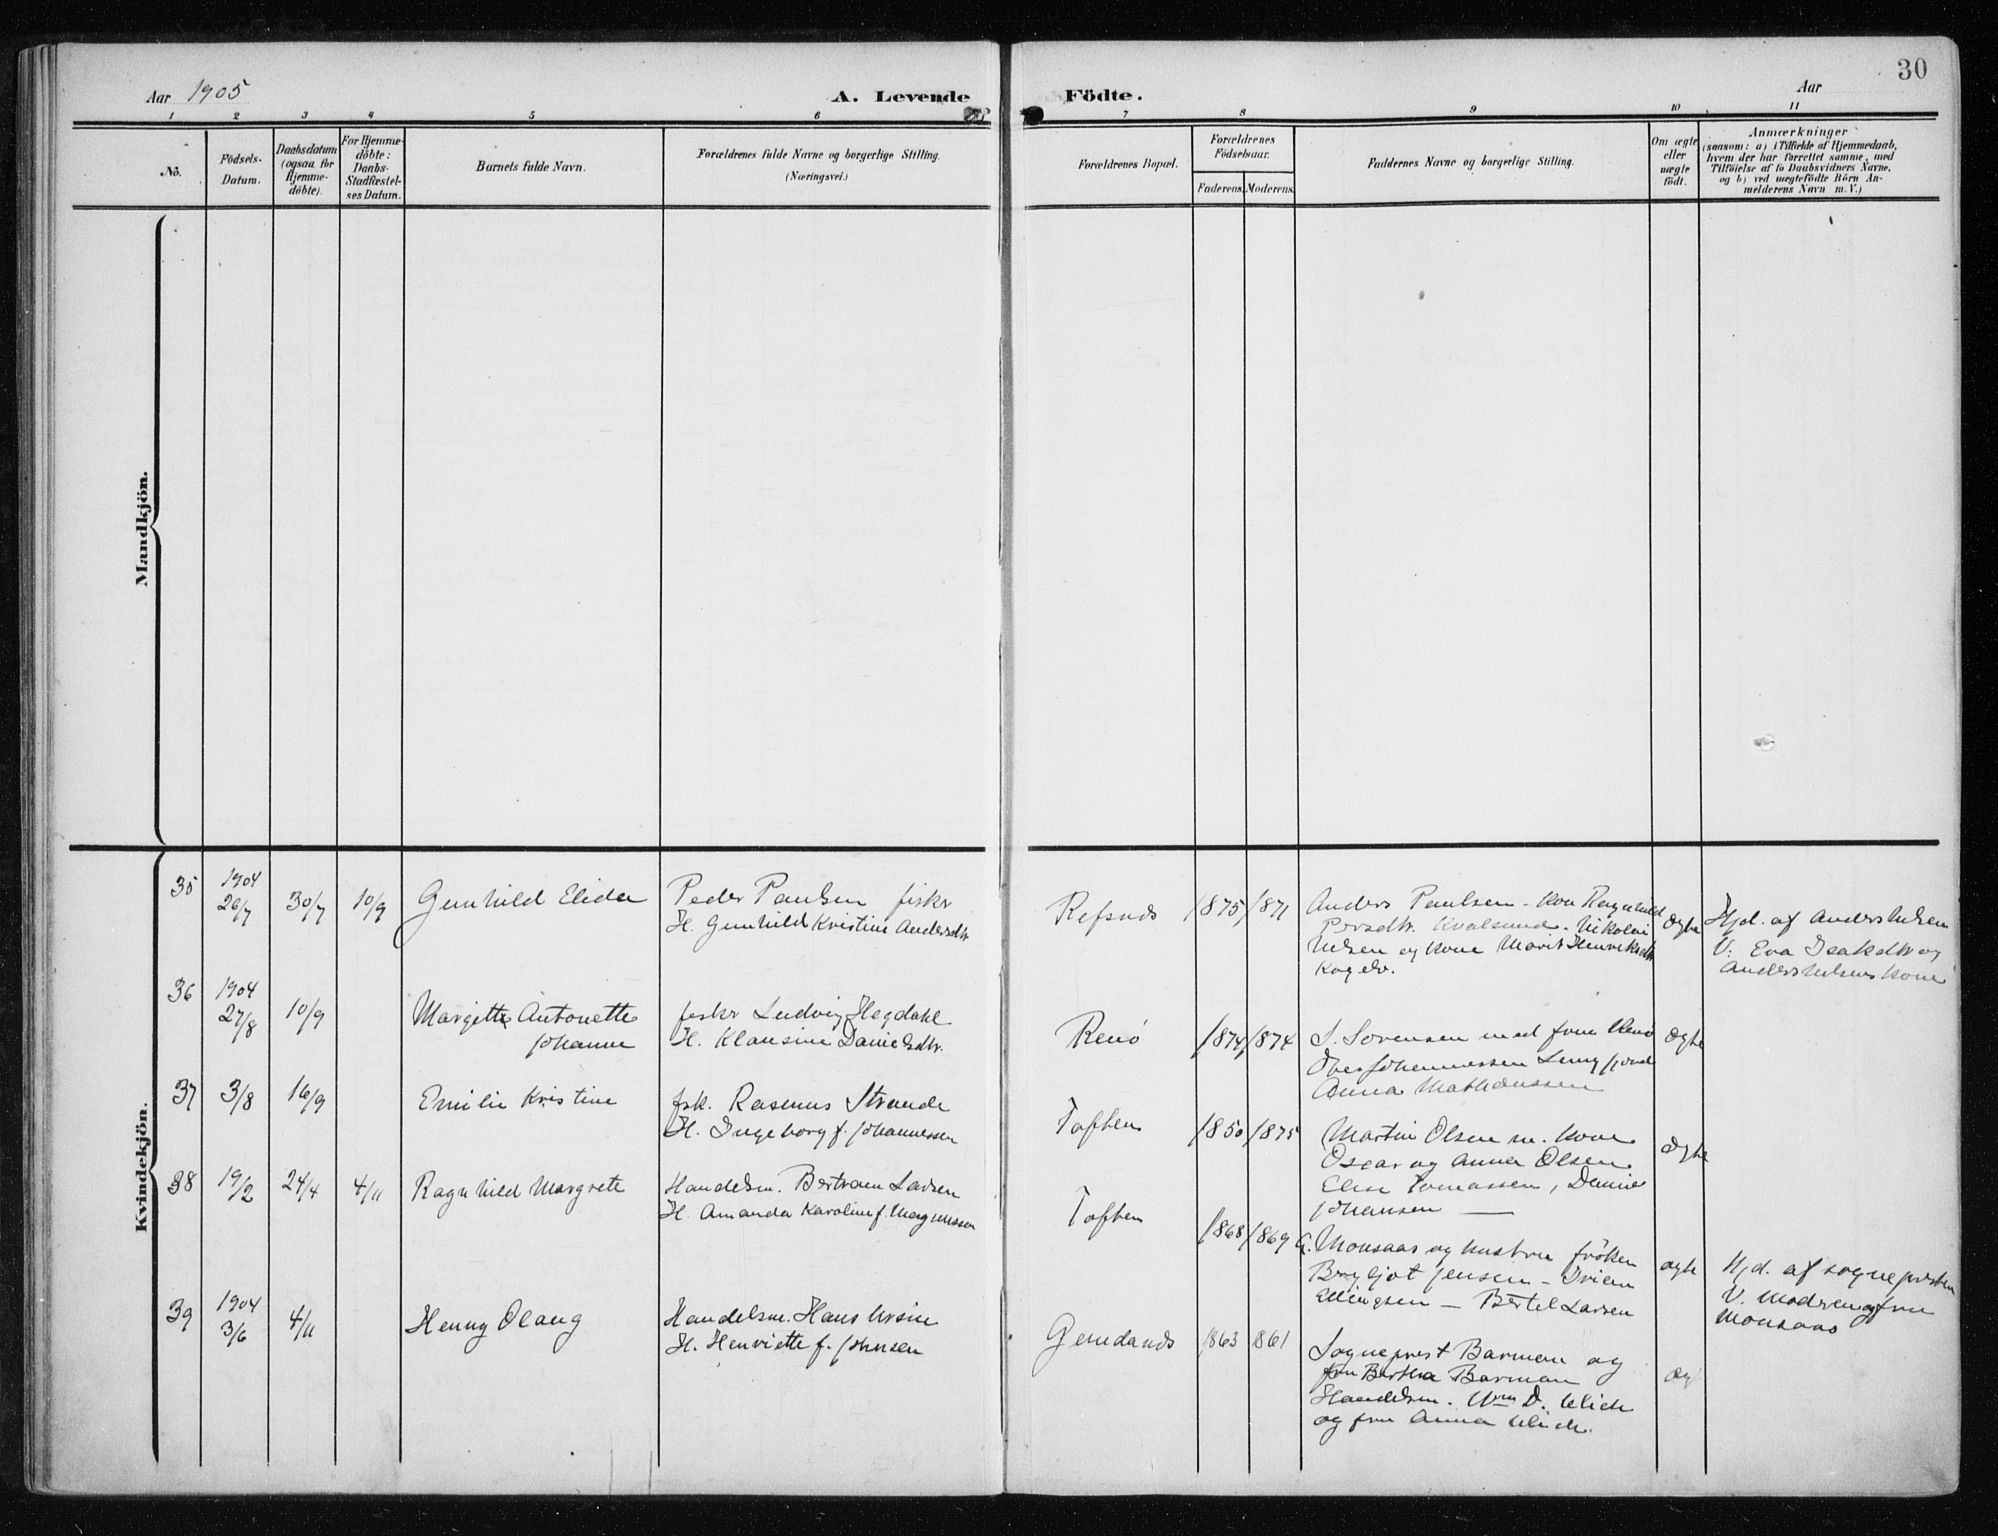 30
Aar 1905 A. Levende Födte. Aar
1 2 3 4 5 6 7 8 9 10 11
No.
Födsels-
Datum.
Daabsdatum
(ogsaa for
Hjemme-
döbte).
For Hjemme-
döbte:
Daabs-
Stadfæstel-
ses Datum.
Barnets fulde Navn.
Forældrenes fulde Navne og borgerlige Stilling.
(Næringsvei.)
Forældrenes Bopæl.
Forældrenes
Födselsaar.
Faderens. Moderens.
Faddernes Navne og borgerlige Stilling.
Om ægte
eller
uægte
födt.
Anmærkninger
(saasom: a) i Tilfælde af Hjemmedaab,
hvem der har forrettet samme, med
Tilföielse af to Daabsvidners Navne,
og b) ved uægtefödte Börn An-
melderens Navn m. V.)
Mandkjön.
Kvindekjön.
35 1904
26/7 30/7 10/9 Gunhild Elida
Peder Paulsen fiskr
H. Gunhild Kristine Andersdtr
Refsnds 1875 1871
Anders Paulsen - Kon Ragnhild
Persdtr. Kvalsund. Nikolai
Nilsen og kone Marit Henriksdtr
ægte
Hjd. af Anders Nilsen
V: Eva Isakdtr og
Anders Nilsens kone
36 1904
27/8 10/9 Margitte Antonette
Johanne
fiskr Ludvig Hegdahl
H. Klausine Danielsdtr.
Renö 1874 1874
S. Sörensen med frue Renö
Johannessen
Anna Mathæussen
ægte
37 3/8 16/9 Emilie Kristine
fsk. Rasmus Strande
H. Ingeborg f. Johannessen
Toften 1850 1875
Martin Olsen m. kone
Oscar og Anna Olsen
Elise Tomassen, Daniel
Johansen —
ægte
38 19/2 24/4 4/11 Ragnhild Margrete
Handelsm. Bertram Larsen
H. Amanda Karoline f. Magnussen
Toften 1868 1869
G. Monsaas og hustru fröken
Bergljot Jensen -
Ellingsen - Bertel Larsen
ægte
Hjd. af sognepresten
V. Madsen og fru
Monsaas
39 1904
3/6 4/11 Henny Olaug
Handelsm. Hans Ursin
H. Henriette f. Johnsen
1863 1861
Sogneprest Barman og
fru Bertha Barman
Handelsm. Wm D. Ulich
og fru Anna Ulich.